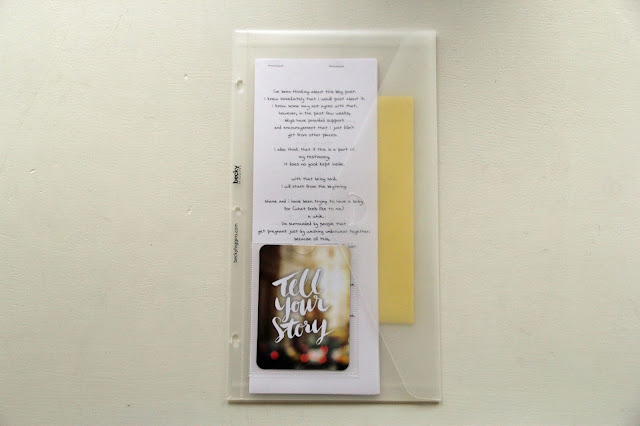 I've been thinking about this blog post.
I knew immediately that I would post about it.
I know some may not agree with that,
however, in the past few weeks,
blogs have provided support
and encouragement that I just didn't
get from other places.
I also think that if this is a part of
my testimony,
it does no good kept inside.
with that being said,
I will start from the beginning.
shane and I have been trying to have a baby
for (what feels like to me)
a while.
I'm surrounded by people that
get pregnant just by washing underwear together.
because of this,
Tell
your
Story
becky
beckyhiggins.com